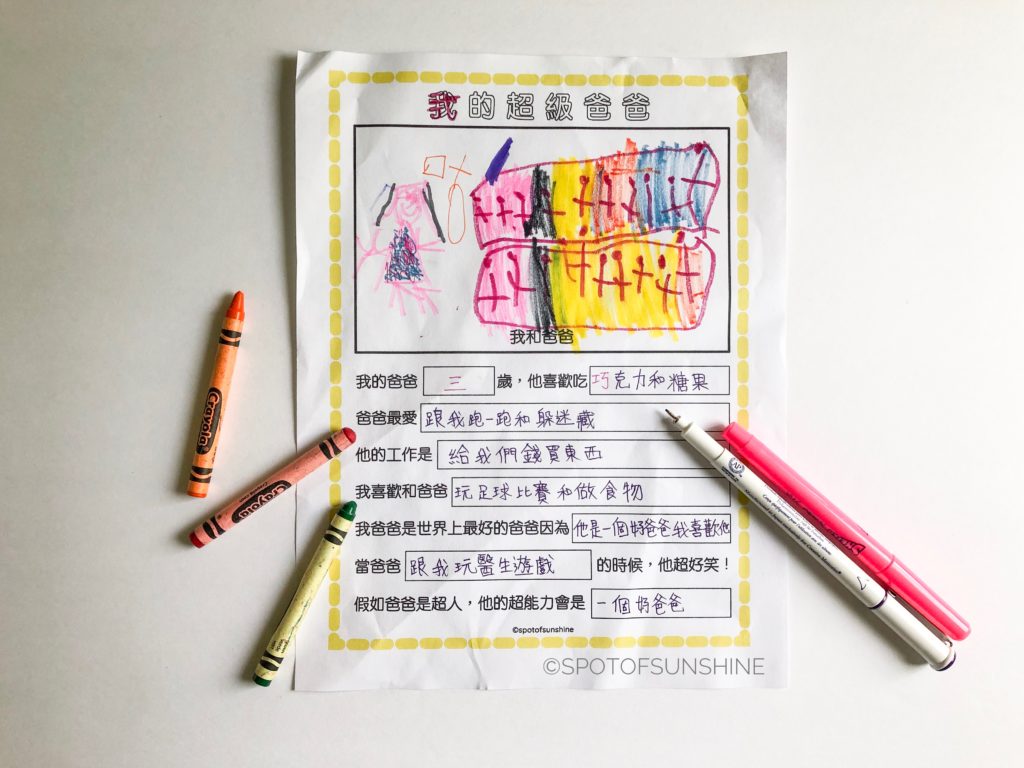 我的超級爸爸
我和爸爸
我的爸爸 三 歲，他喜歡吃 巧克力和糖果
爸爸最愛 跟我跑一跑和躲迷藏
他的工作是 給我們錢買東西
我喜歡和爸爸 玩足球比賽和做食物
我爸爸是世界上最好的爸爸因為 他是一個好爸爸我喜歡他
當爸爸 跟我玩醫生遊戲 的時候，他超好笑！
假如爸爸是超人，他的超能力會是 一個好爸爸
©spotofsunshine
©SPOTOFSUNSHINE
Crayola
Crayola